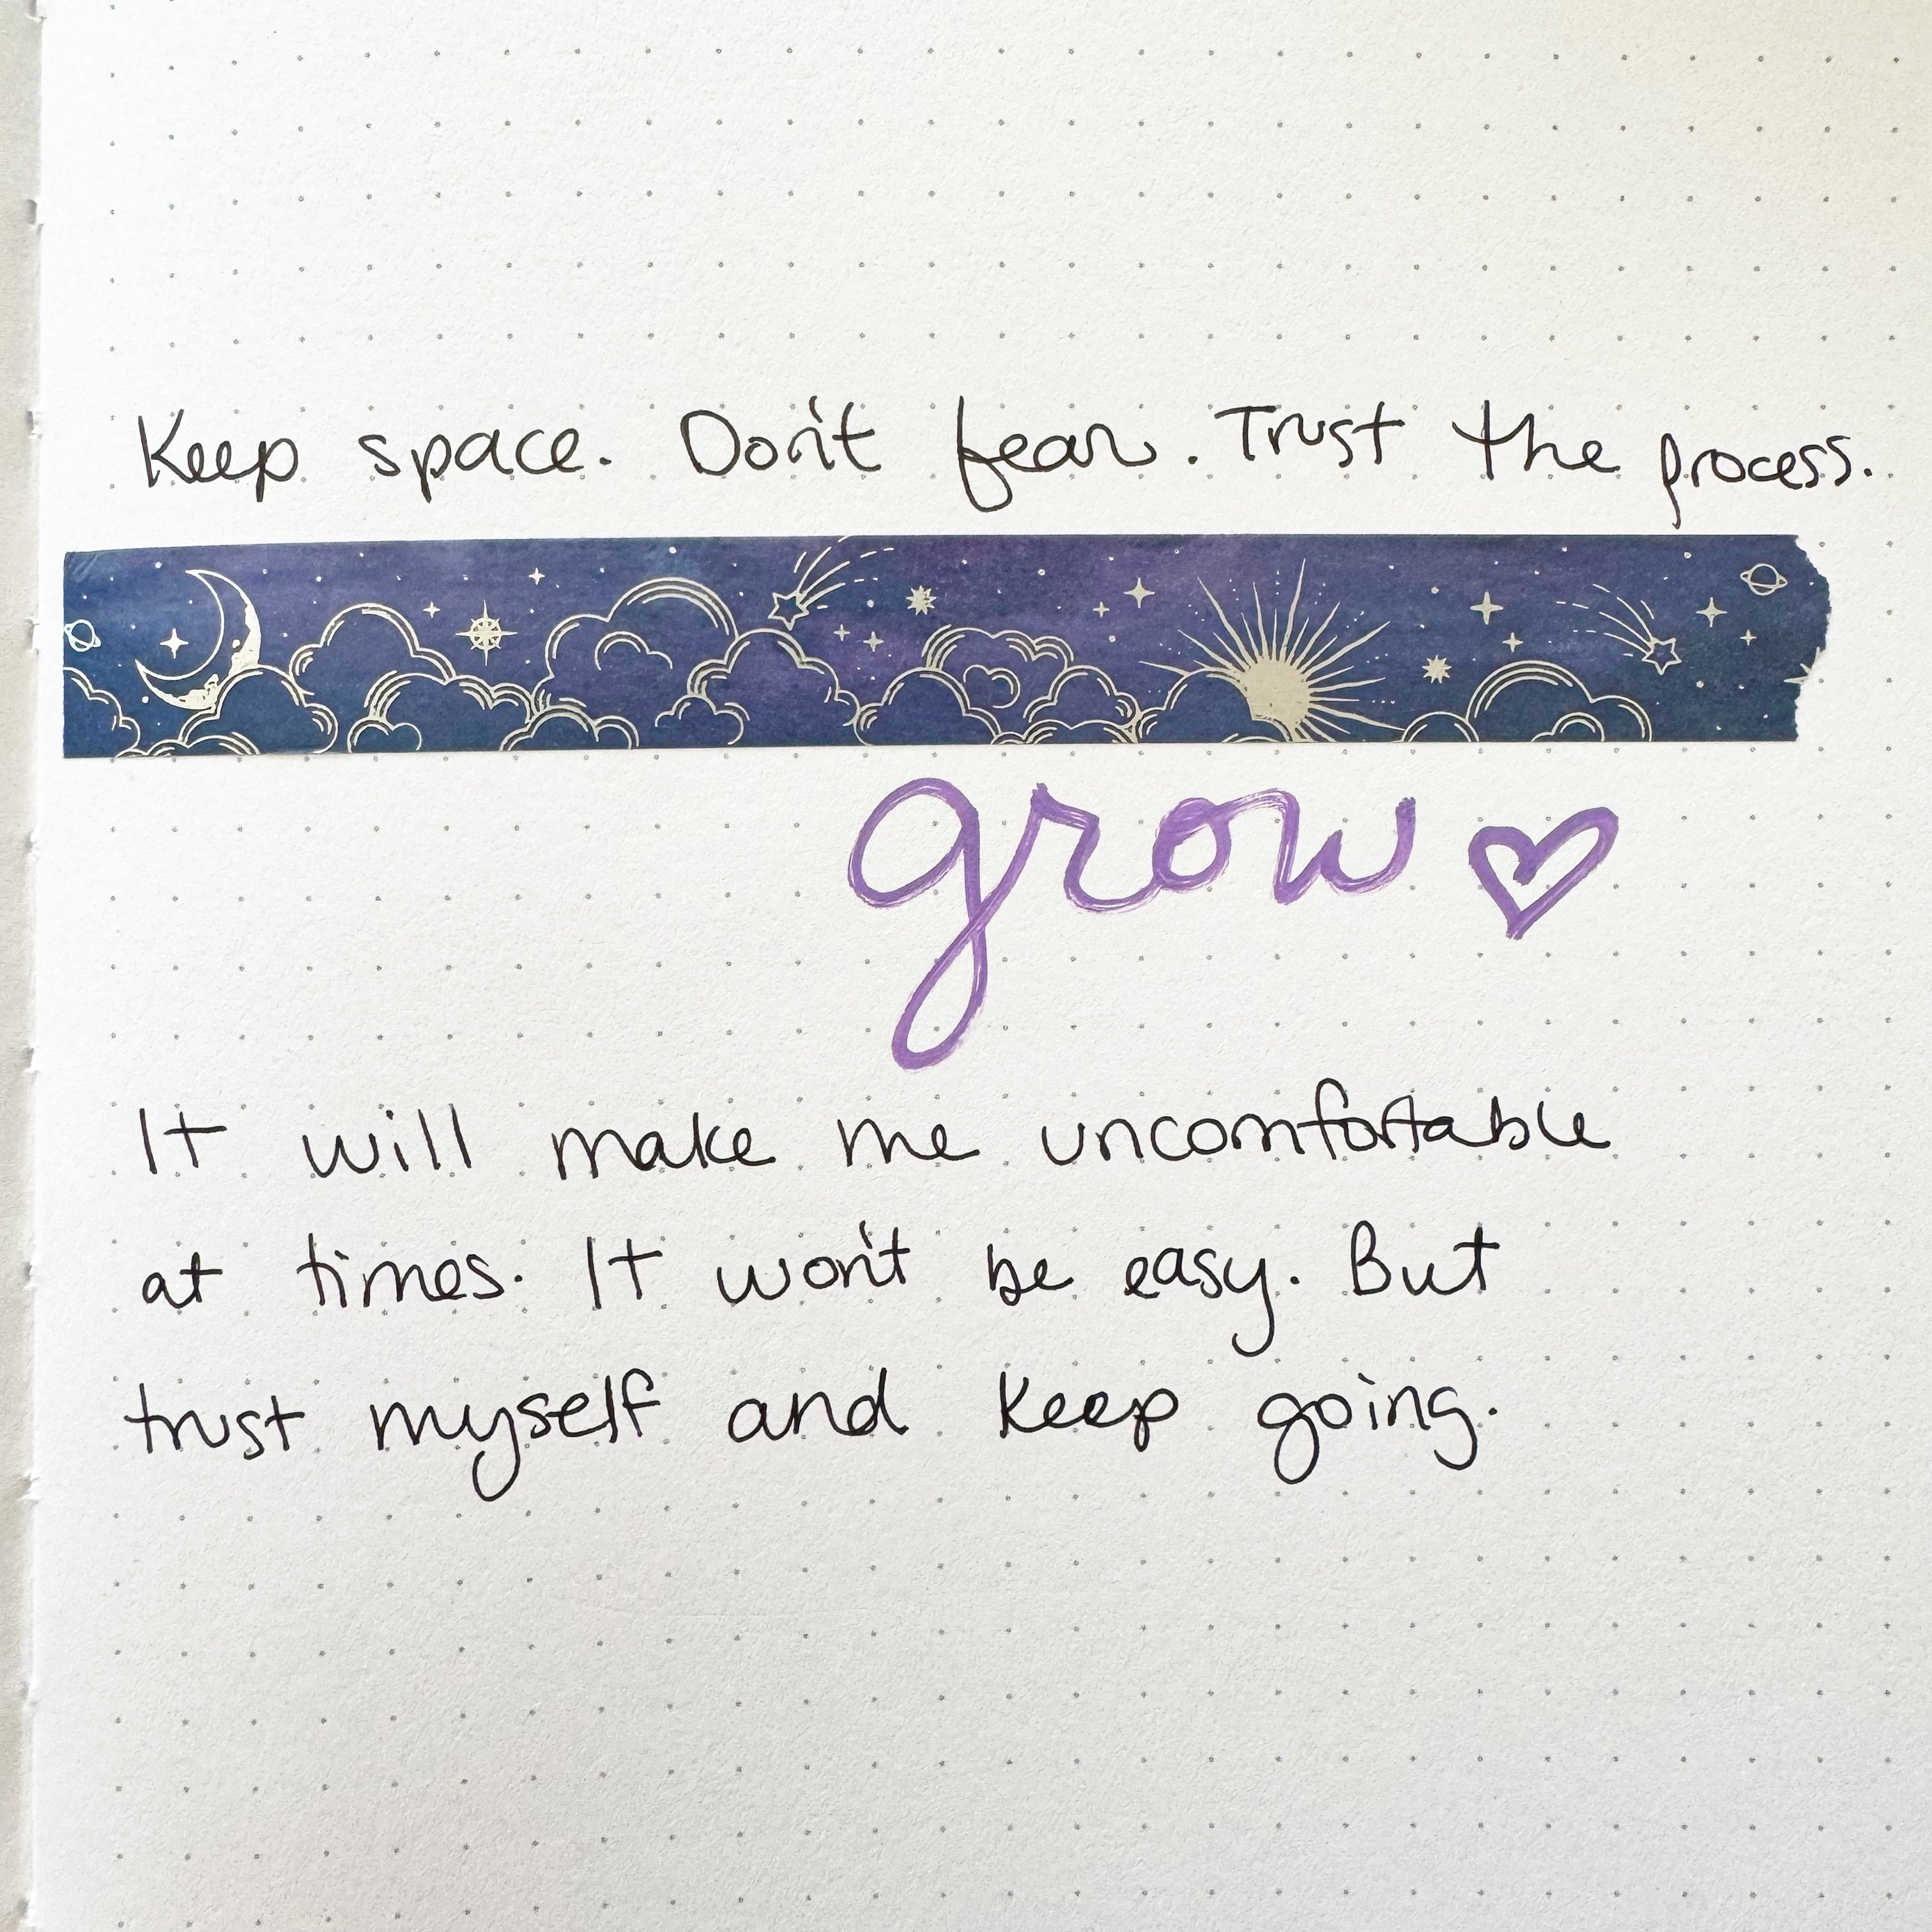 Keep space. Don't fear. Trust the process.
grow ♡
It will make me uncomfortable
at times. It won't be easy. But
trust myself and keep going.